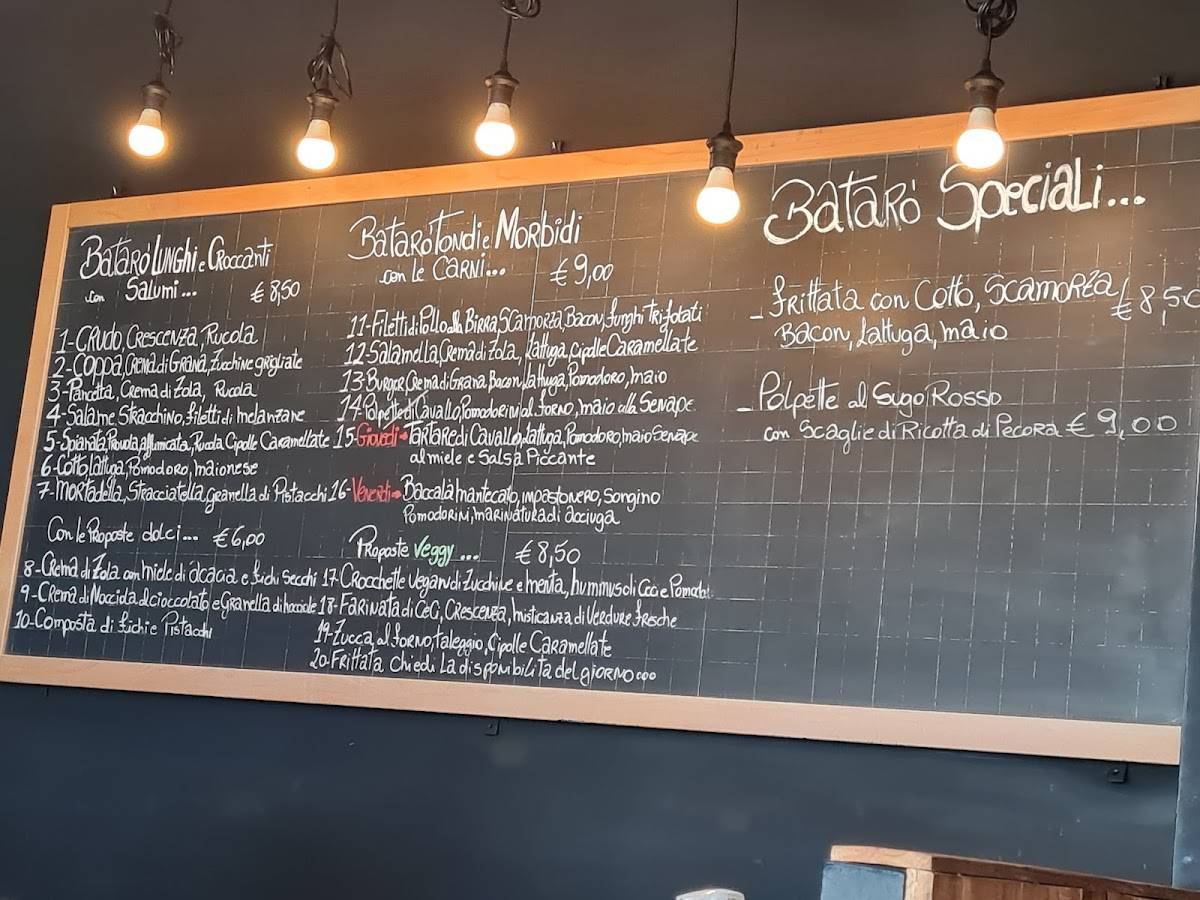 Batarò Lunghi e Croccanti
con Salumi... € 8,50
1-Crudo, Crescenza, Rucola
2-Coppa, Crema di Grana, Zucchine grigliate
3-Pancetta, Crema di Zola, Rucola
4-Salame Stracchino, filetti di melanzane
5-Spianata, Provola affumicata, Rucola Cipolle Caramellate
6-Cotto, lattuga, Pomodoro, maionese
7-Mortadella, Stracciatella, granella di Pistacchi
Con le Proposte dolci... €6,00
8-Crema di Zola con miele di acacia e fichi Secchi
9-Crema di Nocciola al cioccolato e Granella di
10-Composta di fichi e Pistacchi
Batarò Tondi e Morbidi
con le Carni... € 9,00
11-Filetti di Pollo alla Birra, Scamorza, Bacon, funghi Trifolati
12-Salamella, Crema di Zola, lattuga, Cipolle Caramellate
13-Burger, Crema di Grana, Bacon, lattuga, Pomodoro, maio
14-Polpette di Cavallo, Pomodorini al forno, maio alla Senape
15-Giovedì→Tartare di Cavallo, lattuga, Pomodoro, maio Senape
al miele e Salsa Piccante
16-Venerdì→Baccalà mantecato, impasto nero, Songino
Pomodorini, marinatura di acciuga
Proposte Veggy... € 8,50
17-Crocchette vegan di Zucchine e menta, hummus di Ceci e Pomod.
18-Farinata di Ceci, Crescenza, misticanza di Verdure fresche
19-Zucca al forno, taleggio, Cipolle Caramellate
20-Frittata Chiedi la disponibilità del giorno...
Batarò Speciali...
- Frittata con Cotto, Scamorza, € 8,50
Bacon, lattuga, maio
- Polpette al Sugo Rosso
con Scaglie di Ricotta di Pecora € 9,00